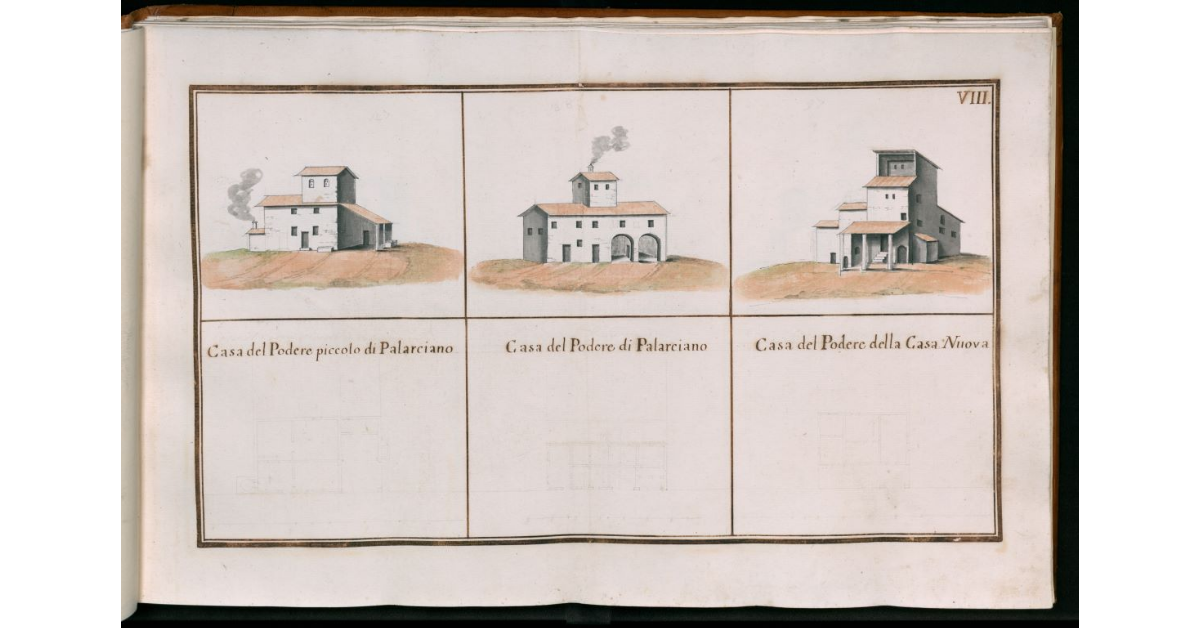 VIII.
Casa del Podere piccolo di Palarciano
Casa del Podere di Palarciano
Casa del Podere della Casa Nuova